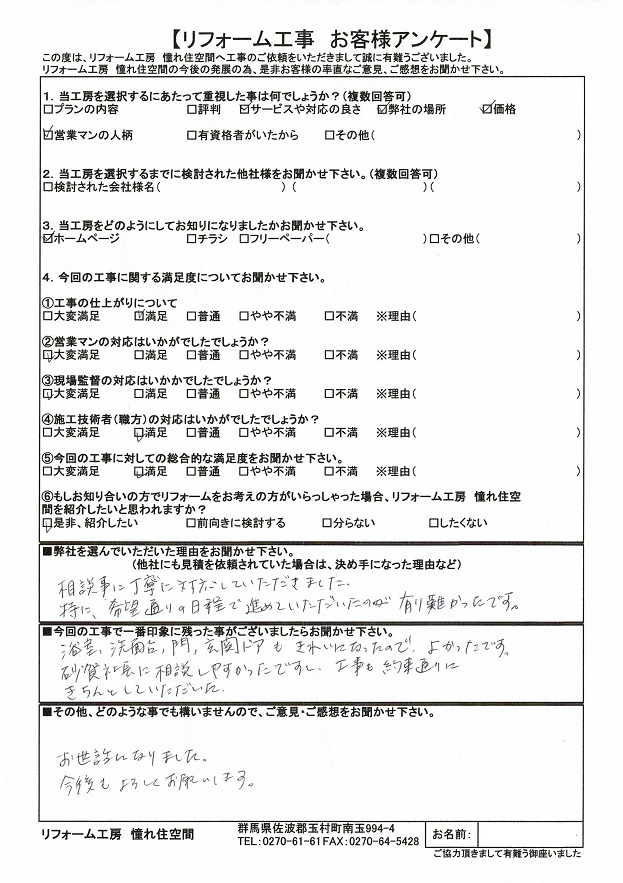 【リフォーム工事　お客様アンケート】
この度は、リフォーム工房　憧れ住空間へ工事のご依頼をいただきまして誠に有難うございました。
リフォーム工房　憧れ住空間の今後の発展の為、是非お客様の率直なご意見、ご感想をお聞かせ下さい。
1．当工房を選択するにあたって重視した事は何でしょうか？(複数回答可)
□プランの内容　□評判　☑サービスや対応の良さ　☑弊社の場所　☑価格
☑営業マンの人柄　□有資格者がいたから　□その他(　)
2．当工房を選択するまでに検討された他社様をお聞かせ下さい。(複数回答可)
□検討された会社様名(　)(　)(　)
3．当工房をどのようにしてお知りになりましたかお聞かせ下さい。
☑ホームページ　□チラシ　□フリーペーパー(　)□その他(　)
4．今回の工事に関する満足度についてお聞かせ下さい。
①工事の仕上がりについて
□大変満足　☑満足　□普通　□やや不満　□不満　※理由(　)
②営業マンの対応はいかがでしたでしょうか？
☑大変満足　□満足　□普通　□やや不満　□不満　※理由(　)
③現場監督の対応はいかかでしたでしょうか？
☑大変満足　□満足　□普通　□やや不満　□不満　※理由(　)
④施工技術者(職方)の対応はいかがでしたでしょうか？
□大変満足　☑満足　□普通　□やや不満　□不満　※理由(　)
⑤今回の工事に対しての総合的な満足度をお聞かせ下さい。
□大変満足　☑満足　□普通　□やや不満　□不満　※理由(　)
⑥もしお知り合いの方でリフォームをお考えの方がいらっしゃった場合、リフォーム工房　憧れ住空
間を紹介したいと思われますか？
☑是非、紹介したい　□前向きに検討する　□分らない　□したくない
■弊社を選んでいただいた理由をお聞かせ下さい。
(他社にも見積を依頼されていた場合は、決め手になった理由など)
相談事に丁寧に対応していただきました。
特に、希望通りの日程で進めていただいたのが有り難かったです。
■今回の工事で一番印象に残った事がございましたらお聞かせ下さい。
浴室、洗面台、門、玄関ドアもきれいになったので、よかったです。
砂賀社長に相談しやすかったですし、工事も約束通りに
きちんとしていただいた。
■その他、どのような事でも構いませんので、ご意見・ご感想をお聞かせ下さい。
お世話になりました。
今後もよろしくお願いします。
リフォーム工房　憧れ住空間
群馬県佐波郡玉村町南玉994-4
TEL:0270-61-61 FAX:0270-64-5428
お名前:
ご協力頂きまして有難う御座いました